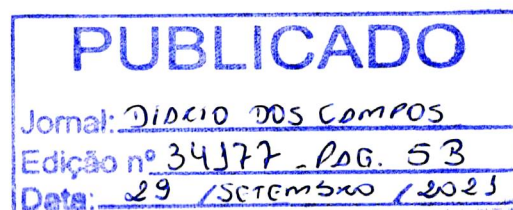 PUBLICADO
Jornal: DIÁRIO DOS CAMPOS
Edição nº 34177 - PÁG. 5B
Data: 29 / SETEMBRO / 2021